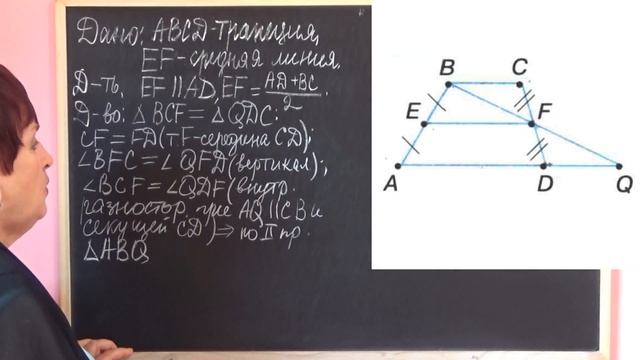 Дано: ABCD-трапеция,
EF-средняя линия.
Д-ть, EF||AD, EF = AD+BC/2.
Д-во: △BCF = △QDC:
CF=FD(т.F-середина CD);
∠BFC=∠QFD(вертикал);
∠BCF=∠QDF(внутр.
разностор. при AQ||CB и
секущей CD) ⇒ по II пр.
△ABQ
B C
E F
A D Q